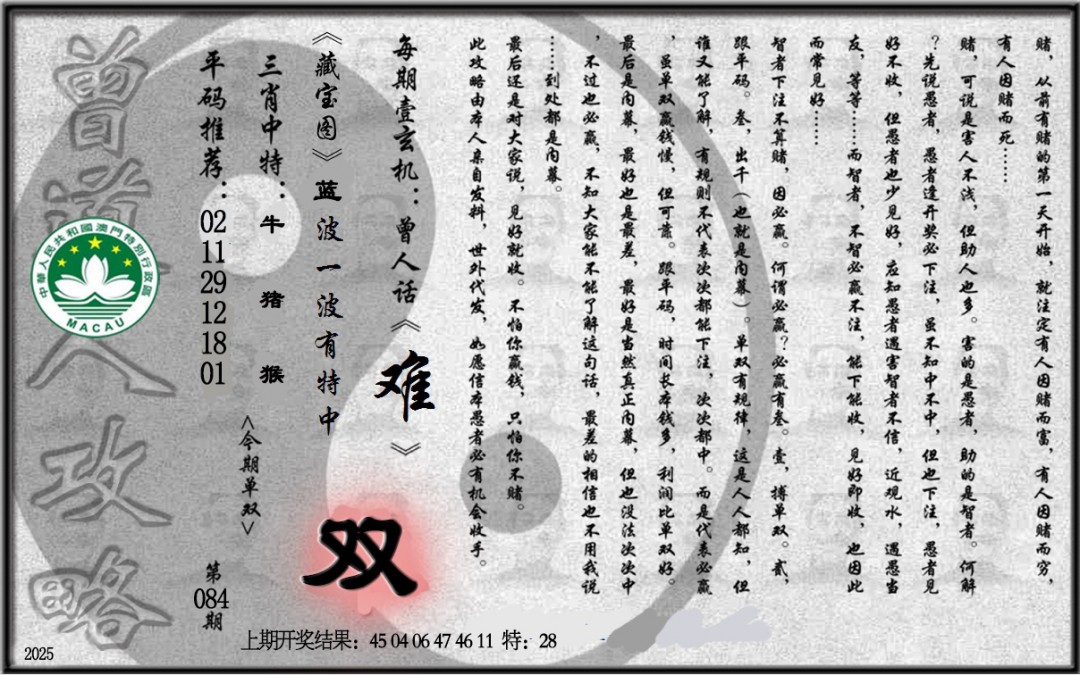 赌，从前有赌的第一天开始，就注定有人因赌而富，有人因赌而穷，
有人因赌而死……
赌，可说是害人不浅，但助人也多。害的是愚者，助的是智者。何解
？先说愚者，愚者逢开奖必下注，虽不知中不中，但也下注，愚者见
好不收，但愚者也少见好，应知愚者遇害智者不信，近观水，遇愚当
友，等等……而智者，不智必赢不注，能下能收，见好即收，也因此
而常见好……
智者下注不算赌，因必赢。何谓必赢？必赢有叁。壹，搏单双。贰，
跟平码。叁，出千（也就是内幕）。单双有规律，这是人人都知，但
谁又能了解，有规则不代表次次都能下注，次次都中。而是代表必赢
，虽单双赢钱慢，但可靠。跟平码，时间长本钱多，利润比单双好。
最后是内幕，最好也是最差，最好是当然真正内幕，但也没法次次中
，不过也必赢，不知大家能不能了解这句话，最差的相信也不用我说
……到处都是内幕。
最后还是对大家说，见好就收。不怕你赢钱，只怕你不赌。
此攻略由本人亲自发料，世外代发，如愿信本愚者必有机会收手。
每期壹玄机：曾人话《难》
《藏宝图》蓝波一波有特中
双
三肖中特：牛 猪 猴
<今期单双>
平码推荐：02 11 29 12 18 01
第084期
曾道人攻略
中華人民共和國澳門特別行政區
MACAU
上期开奖结果：45 04 06 47 46 11 特：28
2025